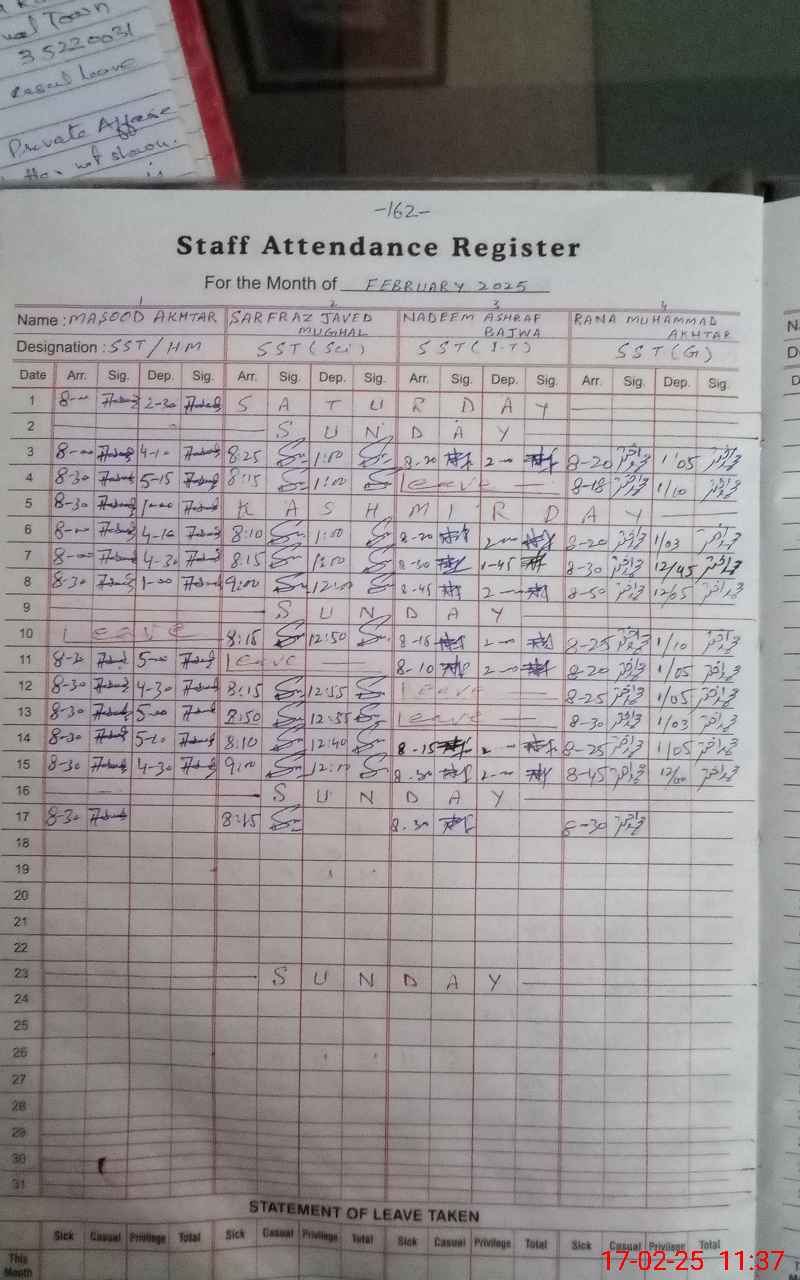 Town
35220031
casual leave
Private Affair
not shown.
-162-
Staff Attendance Register
For the Month of FEBRUARY 2025
1 2 3 4
Name : MASOOD AKHTAR SARFRAZ JAVED MUGHAL NADEEM ASHRAF BAJWA RANA MUHAMMAD AKHTAR
Designation : SST/HM SST(Sci) SST(I.T) SST(G)
Date Arr. Sig. Dep. Sig. Arr. Sig. Dep. Sig. Arr. Sig. Dep. Sig. Arr. Sig. Dep. Sig.
1 8-00 2-30 S A T U R D A Y
2 S U N D A Y
3 8-00 4-10 8:25 1:00 8-20 2-00 8-20 1/05
4 8-30 5-15 8:15 1:00 Leave 8-18 1/10
5 8-30 1-00 K A S H M I R D A Y
6 8-00 4-10 8:10 1:00 8-20 2-00 8-20 1/03
7 8-00 4-30 8:15 1:00 8-30 1-45 8-30 12/45
8 8-30 1-00 9:00 12:00 8-45 2-00 8-50 12/05
9 S U N D A Y
10 Leave 8:15 12:50 8-15 2-00 8-25 1/10
11 8-30 5-00 Leave 8-10 2-00 8-20 1/05
12 8-30 4-30 8:15 12:55 Leave 8-25 1/05
13 8-30 5-00 8:50 12:55 Leave 8-30 1/03
14 8-30 5-10 8:10 12:40 8-15 2-00 8-25 1/05
15 8-30 4-30 9:00 12:10 8-30 2-00 8-45 12/00
16 S U N D A Y
17 8-30 8:15 8-30 8-30
18
19
20
21
22
23 S U N D A Y
24
25
26
27
28
29
30
31
STATEMENT OF LEAVE TAKEN
Sick Casual Privilege Total Sick Casual Privilege Total Sick Casual Privilege Total Sick Casual Privilege Total
This Month
17-02-25 11:37